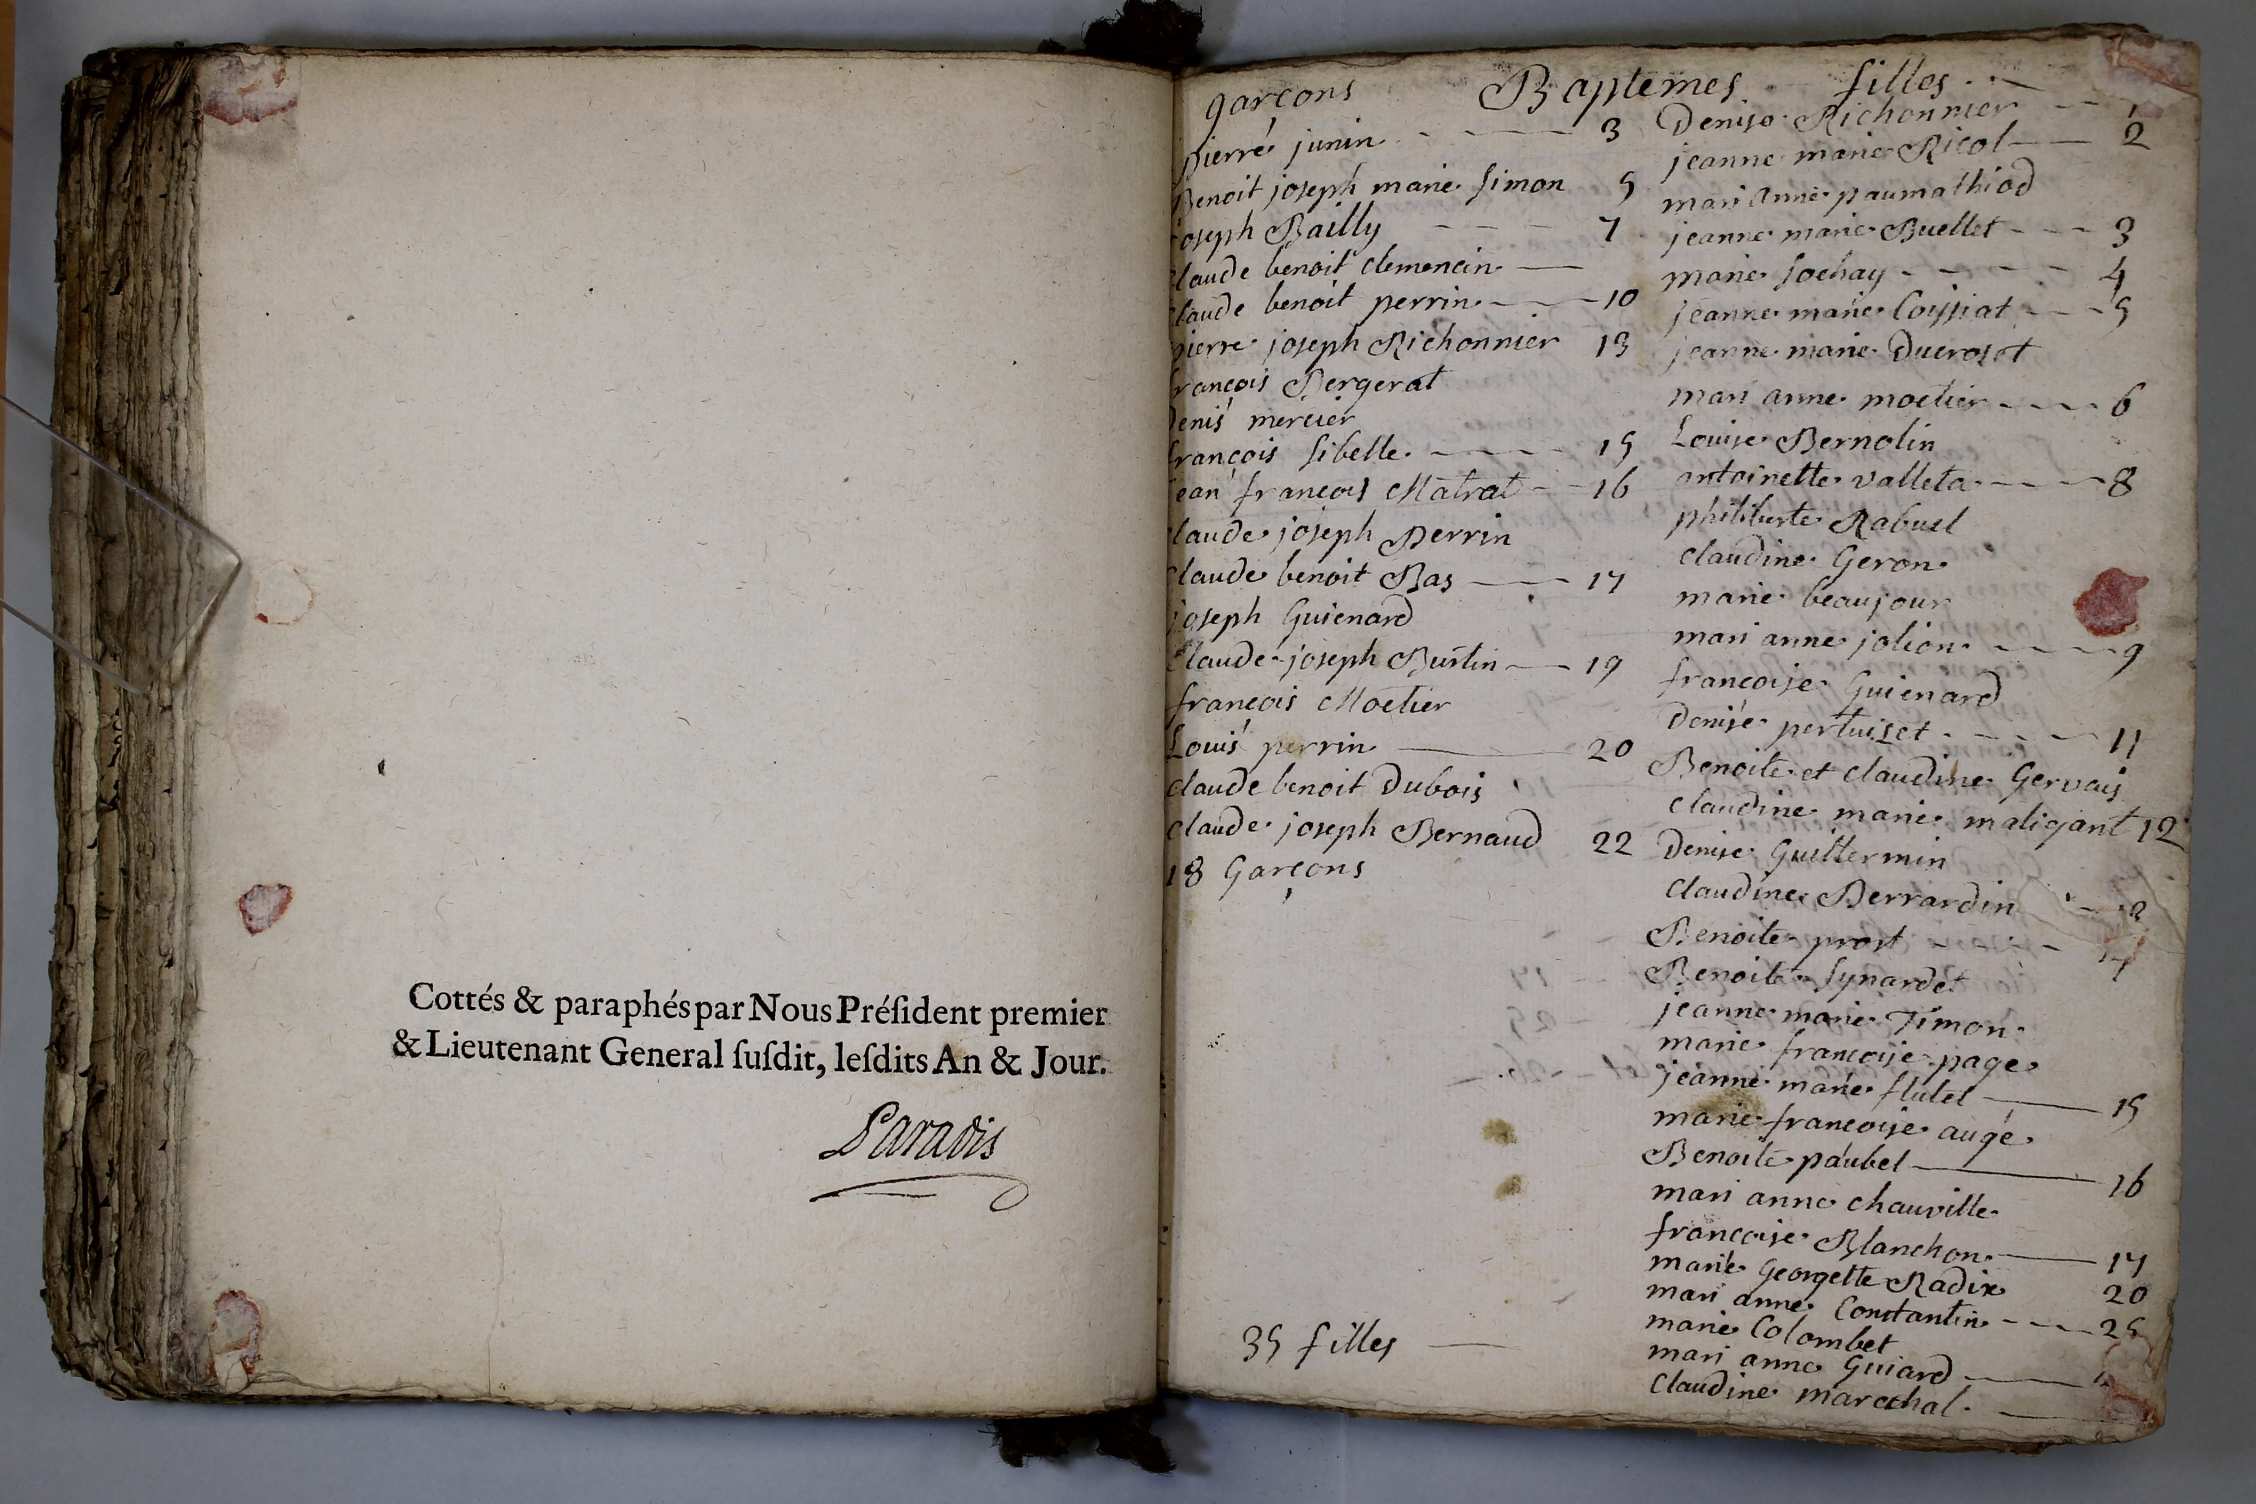 Cottés & paraphés par Nous Préſident premier
& Lieutenant General ſuſdit, leſdits An & Jour.
Paradis
garçons Baptemes filles
pierre junin 3
Benoit joseph marie simon 5
joseph Bailly 7
claude benoit clemencin
claude benoit perrin 10
pierre joseph Richonnier 13
françois Bergerat
Denis mercier
françois sibelle 15
jean françois Matrat 16
claude joseph Perrin
claude benoit Bas 17
joseph Guienard
Claude joseph Burtin 19
françois Moetier
Louis perrin 20
claude benoit Dubois
claude joseph Bernaud 22
18 Garçons
35 filles
Denise Richonnier 1
jeanne marie Ricol 2
mari anne paumathiod
jeanne marie Buellet 3
marie sochay 4
jeanne marie Coissiat 5
jeanne marie Ducroset
mari anne moetier 6
Louise Bernolin
antoinette valleta 8
philiberte Rabuel
claudine Geron
marie beaujour
mari anne jolion 9
francoise Guienard
Denise pertuiset 11
Benoite et claudine Gervais
claudine marie maligant 12
Denise Guillermin
claudine Berrardin
Benoite prost 14
Benoite synardet
jeanne marie Timon
marie francoise page
jeanne marie flutet 15
marie francoise augé
Benoite paubel 16
mari anne chauville
francoise Blanchon 17
marie Georgette Radix 20
mari anne Constantin 25
marie Colombet
mari anne Guiard
Claudine marechal